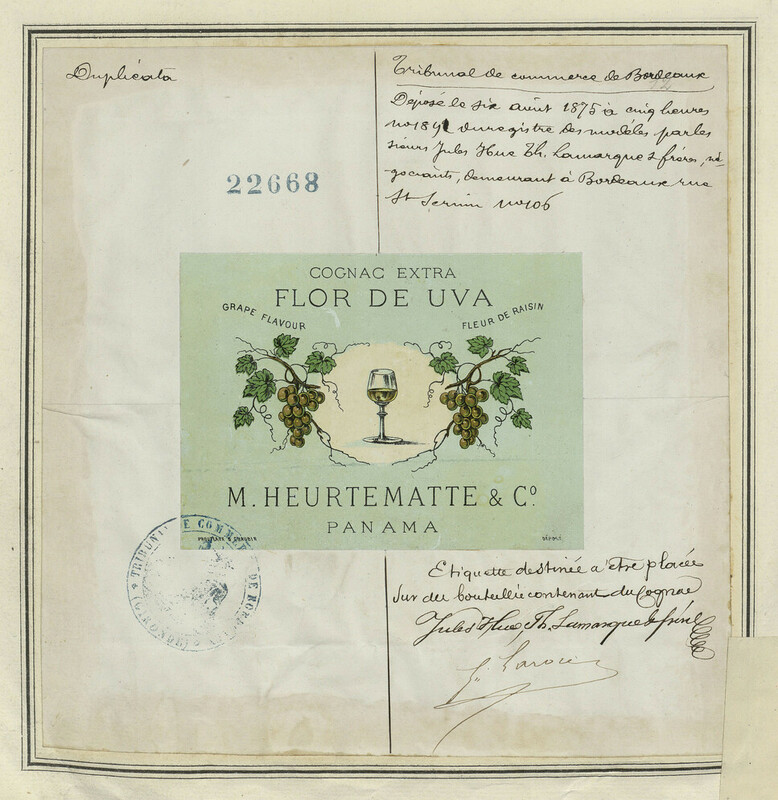 Duplicata
Tribunal de commerce de Bordeaux
Déposé le six août 1875 à cinq heures
no 189 du registre des modèles par les
sieurs Jules Hue Th. Lamarque & frères, né-
gociants, demeurant à Bordeaux rue
St Sernin no 106
22668
COGNAC EXTRA
FLOR DE UVA
GRAPE FLAVOUR
FLEUR DE RAISIN
M. HEURTEMATTE & Cº
PANAMA
DÉPOSÉ
TRIBUNAL DE COMMERCE DE BORDEAUX
(GIRONDE)
Etiquette destinée a être placée
sur des bouteilles contenant du Cognac
Jules Hue, Th. Lamarque & frères